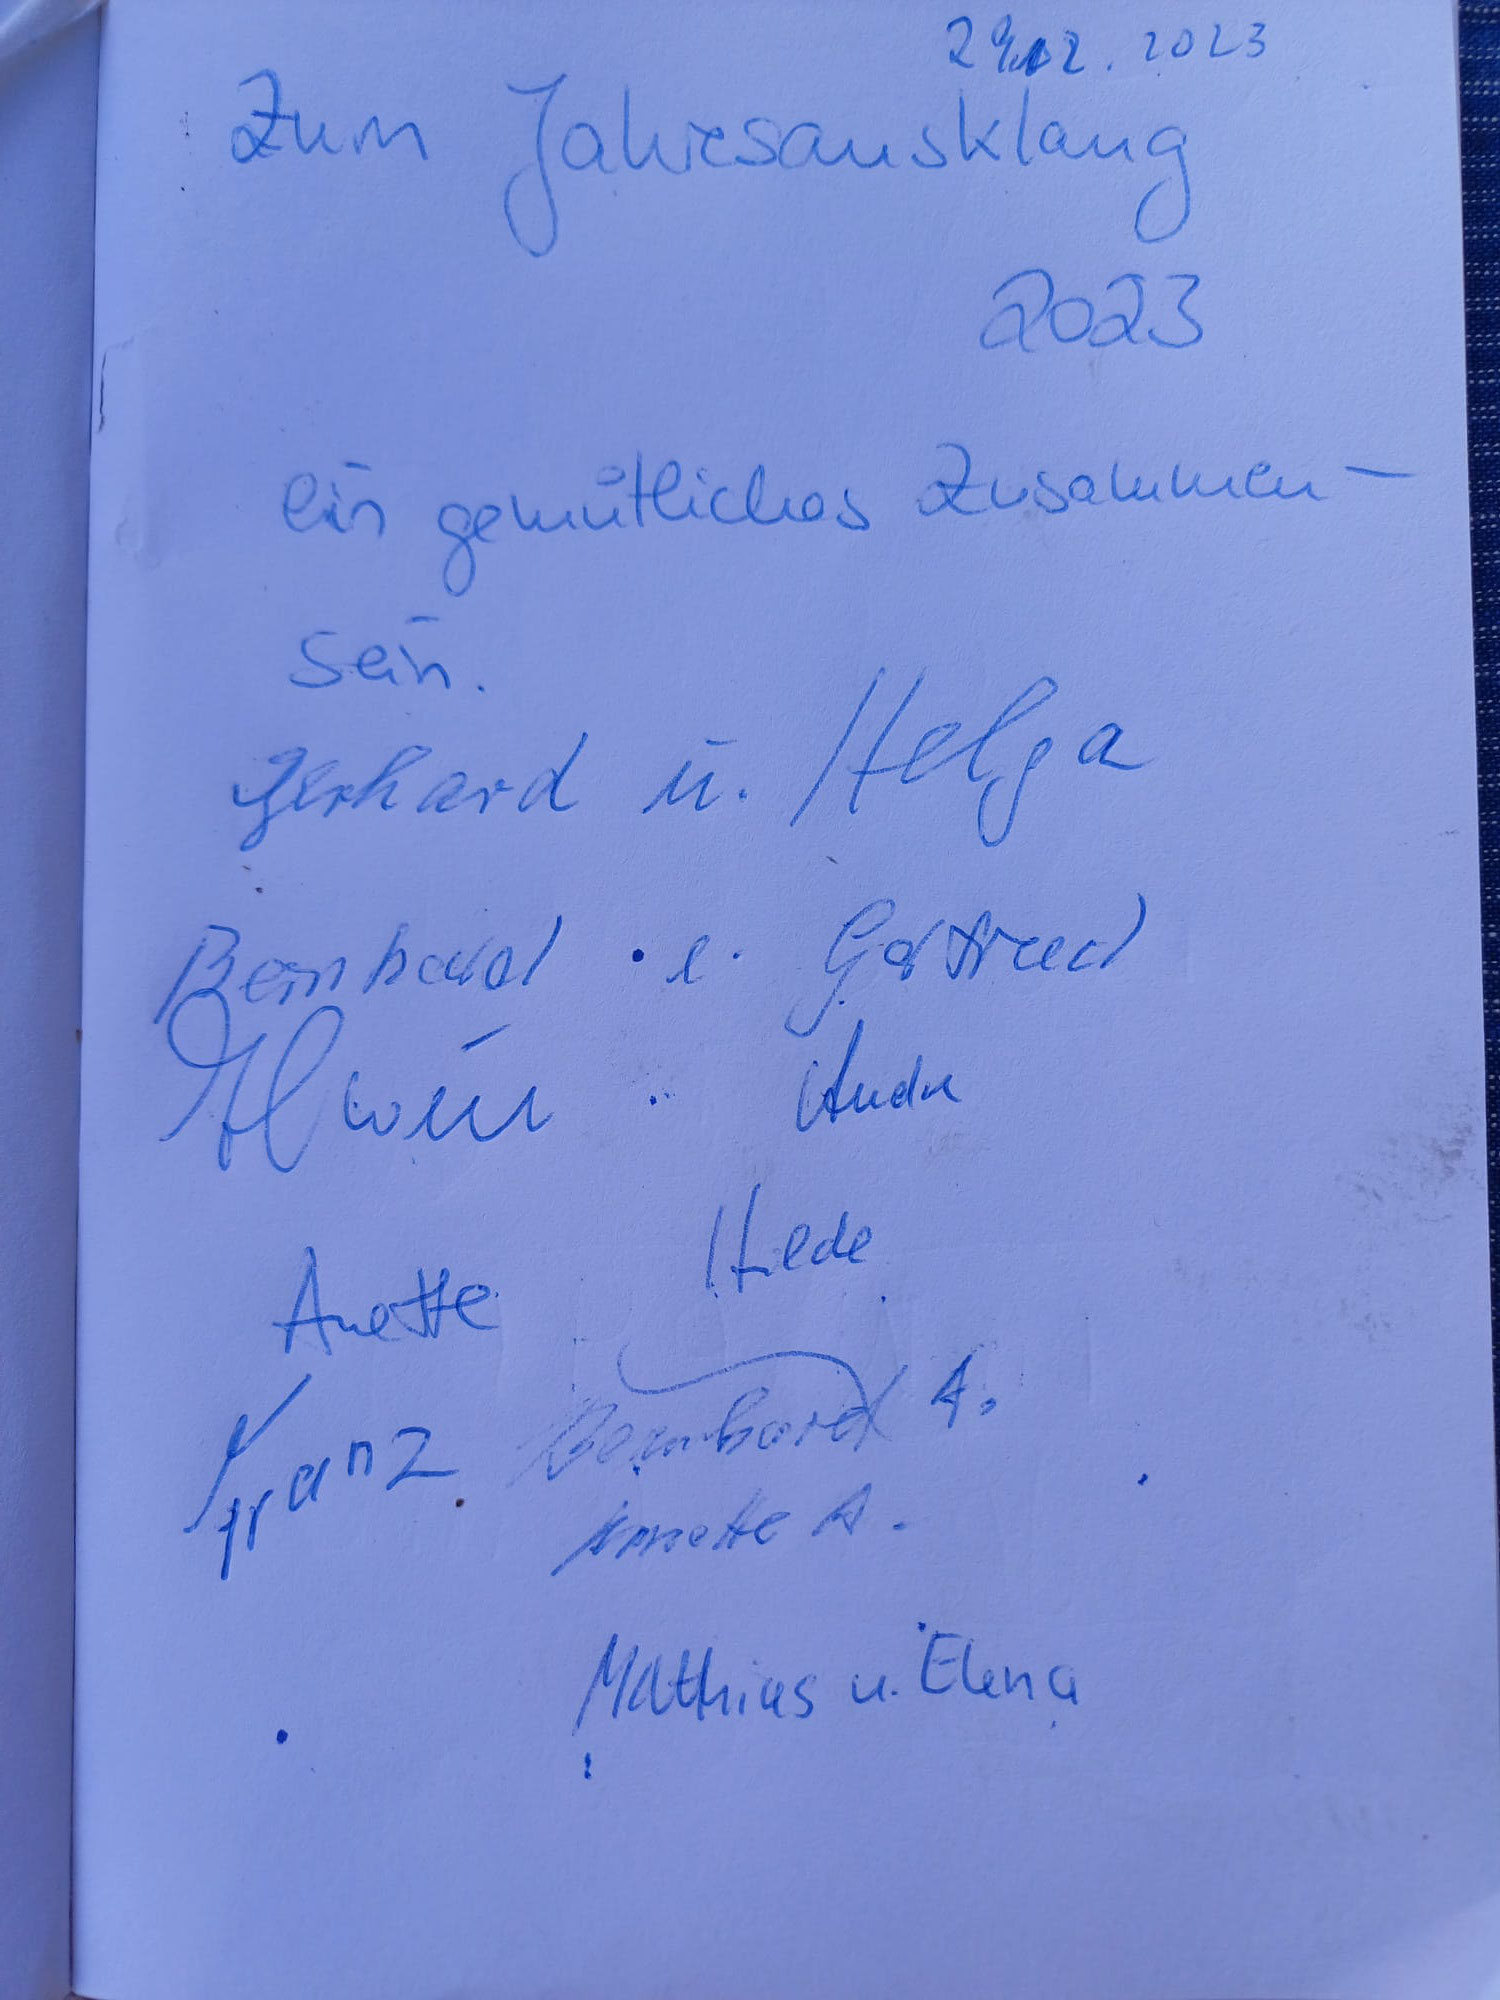 29.12.2023
Zum Jahresausklang
2023
ein gemütliches Zusammen-
sein.
Gerhard u. Helga
Bernhard u. Gertrud
Alwin
Hilde
Anette
Bernhard A.
Franz
Annette A.
Mathias u. Elena